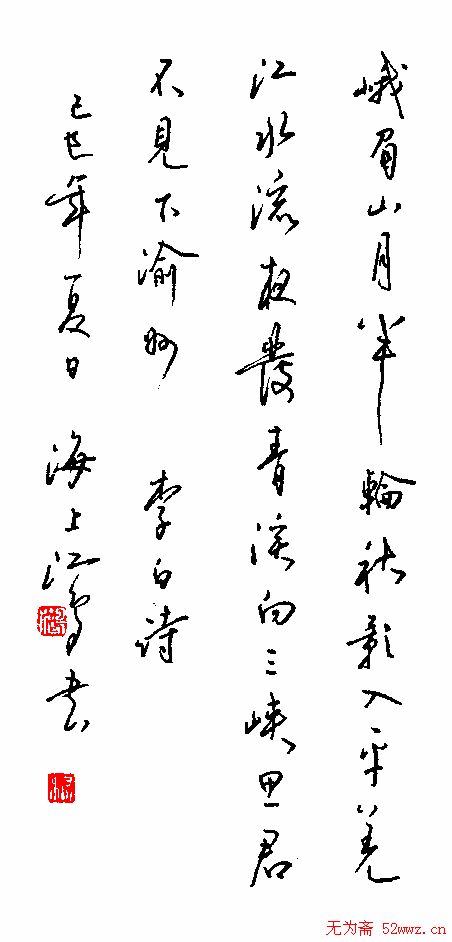 峨眉山月半輪秋影入平羌
江水流夜發青溪向三峽思君
不見下渝州 李白詩
己巳年夏日 海上江书
无为斋 52wwz.cn